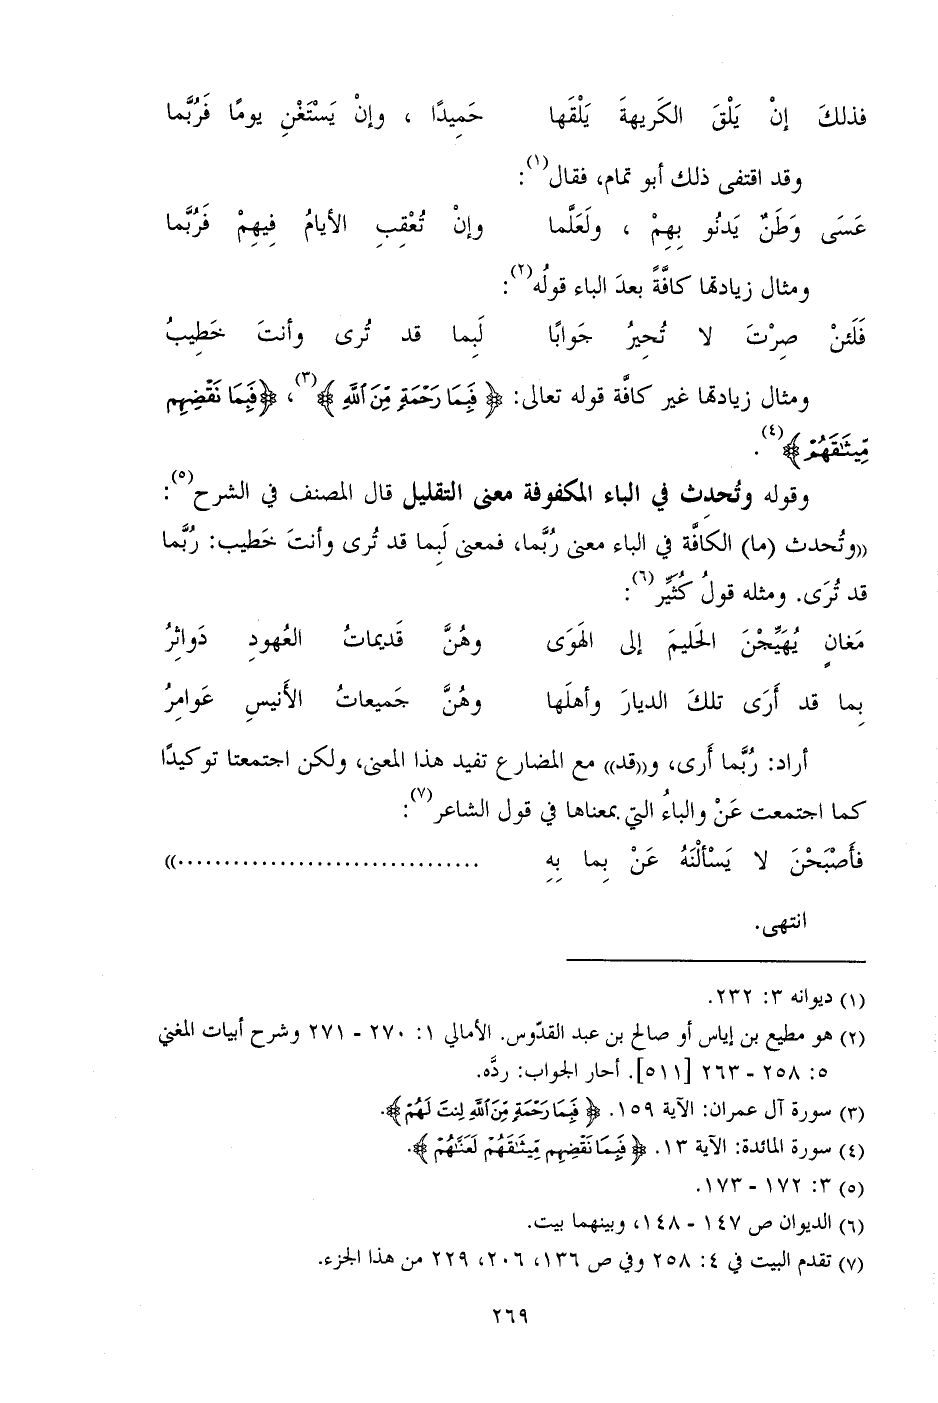 فذلكَ إنْ يَلْقَ الكَريهةَ يَلْقَها حَمِيدًا ، وإنْ يَسْتَغْنِ يومًا فَرُبَّما
وقد اقتفى ذلك أبو تمام، فقال(١):
عَسَى وَطَنٌ يَدنُو بِهِمْ ، ولَعَلَّما وإنْ تُعْقِبِ الأيامُ فِيهِمْ فَرُبَّما
ومثال زيادتها كافَّةً بعدَ الباء قولُه(٢):
فَلَئنْ صِرْتَ لا تُحِيرُ جَوابًا لَبِما قد تُرى وأنتَ خَطِيبُ
ومثال زيادتها غير كافَّة قوله تعالى: ﴿ فَبِمَا رَحْمَةٍ مِّنَ ٱللَّهِ ﴾(٣)، ﴿فَبِمَا نَقْضِهِم
مِّيثَٰقَهُمْ ﴾(٤).
وقوله وتُحدِث في الباء المكفوفة معنى التقليل قال المصنف في الشرح(٥):
«وتُحدث (ما) الكافَّة في الباء معنى رُبَّما، فمعنى لَبِما قد تُرى وأنتَ خَطيب: رُبَّما
قد تُرَى. ومثله قولُ كُثَيِّر(٦):
مَغانٍ يُهَيِّجْنَ الحَليمَ إلى الهَوَى وهُنَّ قَديماتُ العُهودِ دَواثرُ
بِما قد أَرَى تلكَ الديارَ وأهلَها وهُنَّ جَميعاتُ الأَنيسِ عَوامِرُ
أراد: رُبَّما أَرى، و«قد» مع المضارع تفيد هذا المعنى، ولكن اجتمعتا توكيدًا
كما اجتمعت عَنْ والباءُ التي بمعناها في قول الشاعر(٧):
فأَصْبَحْنَ لا يَسْألْنَهُ عَنْ بِما بِهِ ................................»
انتهى.
(١) ديوانه ٣: ٢٣٢.
(٢) هو مطيع بن إياس أو صالح بن عبد القدّوس. الأمالي ١: ٢٧٠ - ٢٧١ وشرح أبيات المغني
٥: ٢٥٨ - ٢٦٣ [٥١١]. أحار الجواب: ردَّه.
(٣) سورة آل عمران: الآية ١٥٩. ﴿ فَبِمَا رَحْمَةٍ مِّنَ ٱللَّهِ لِنتَ لَهُمْ ﴾.
(٤) سورة المائدة: الآية ١٣. ﴿ فَبِمَا نَقْضِهِم مِّيثَٰقَهُمْ لَعَنَّٰهُمْ ﴾.
(٥) ٣: ١٧٢ - ١٧٣.
(٦) الديوان ص ١٤٧ - ١٤٨، وبينهما بيت.
(٧) تقدم البيت في ٤: ٢٥٨ وفي ص ١٣٦، ٢٠٦، ٢٢٩ من هذا الجزء.
٢٦٩